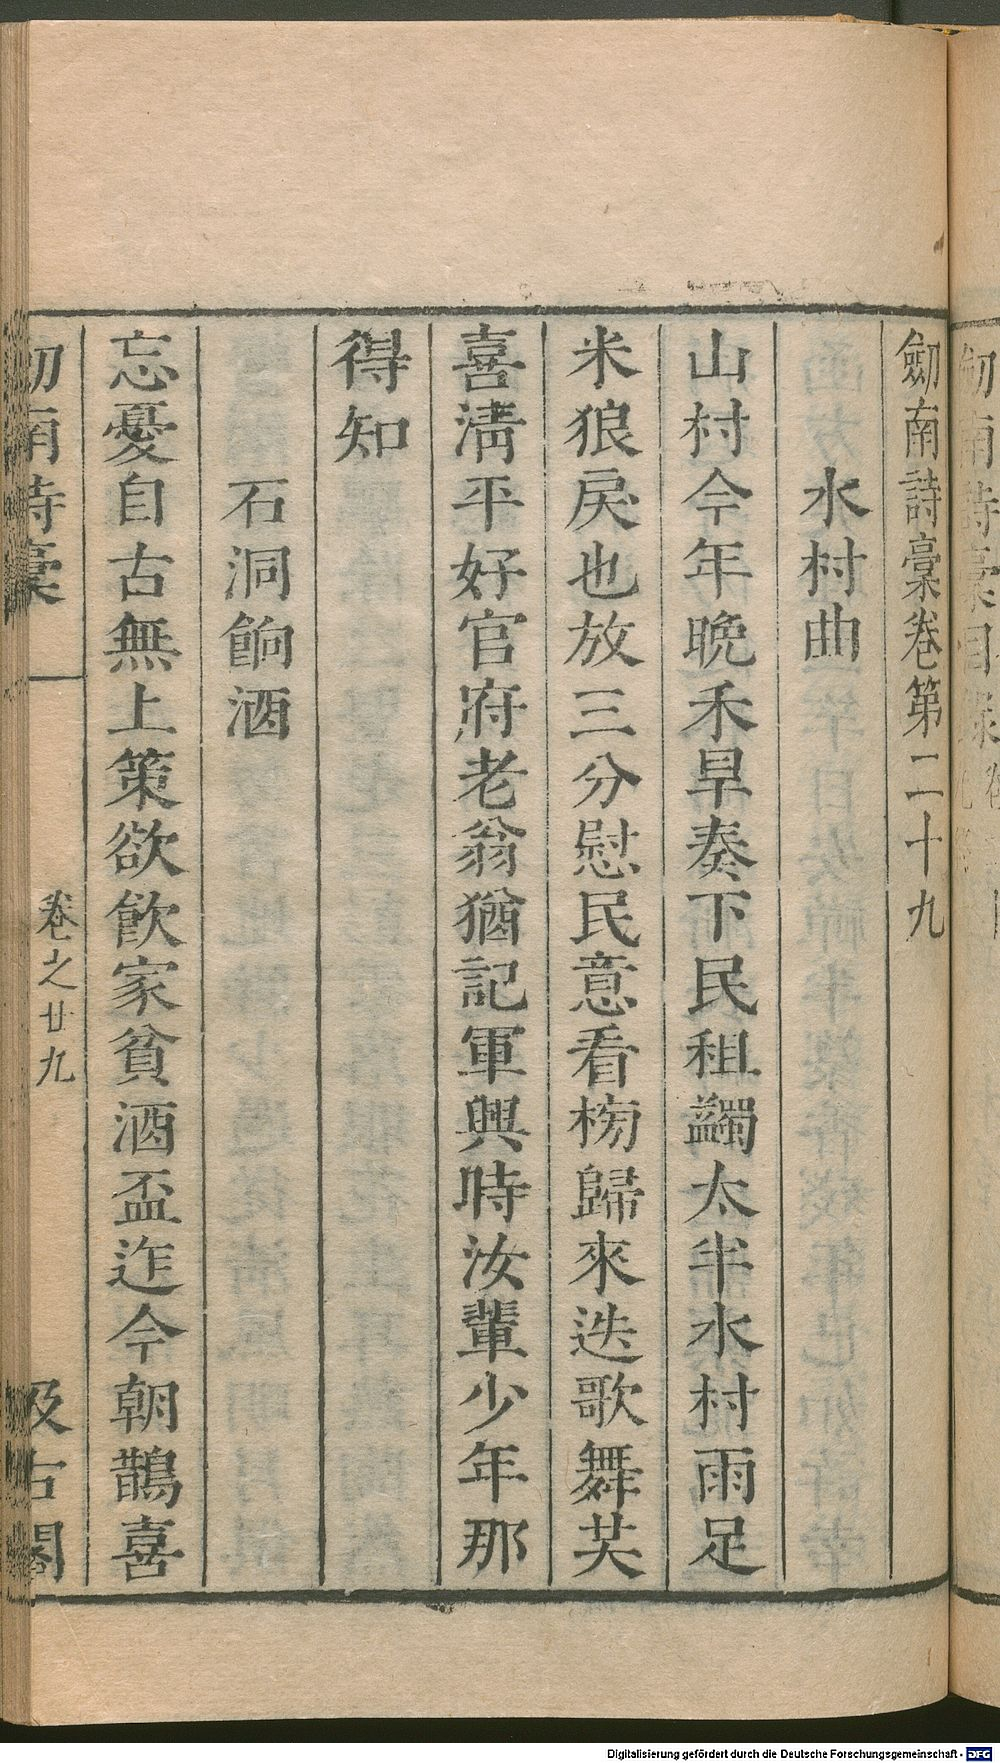 劒南詩稾卷第二十九
水村曲
山村今年晚禾旱奏下民租蠲太半水村雨足
米狼戾也放三分慰民意看榜歸來迭歌舞共
喜淸平好官府老翁猶記軍興時汝輩少年那
得知
石洞餉酒
忘憂自古無上策欲飮家貧酒盃迮今朝鵲喜
南詩稾
卷之廿九
汲古閣
Digitalisierung gefördert durch die Deutsche Forschungsgemeinschaft - DFG